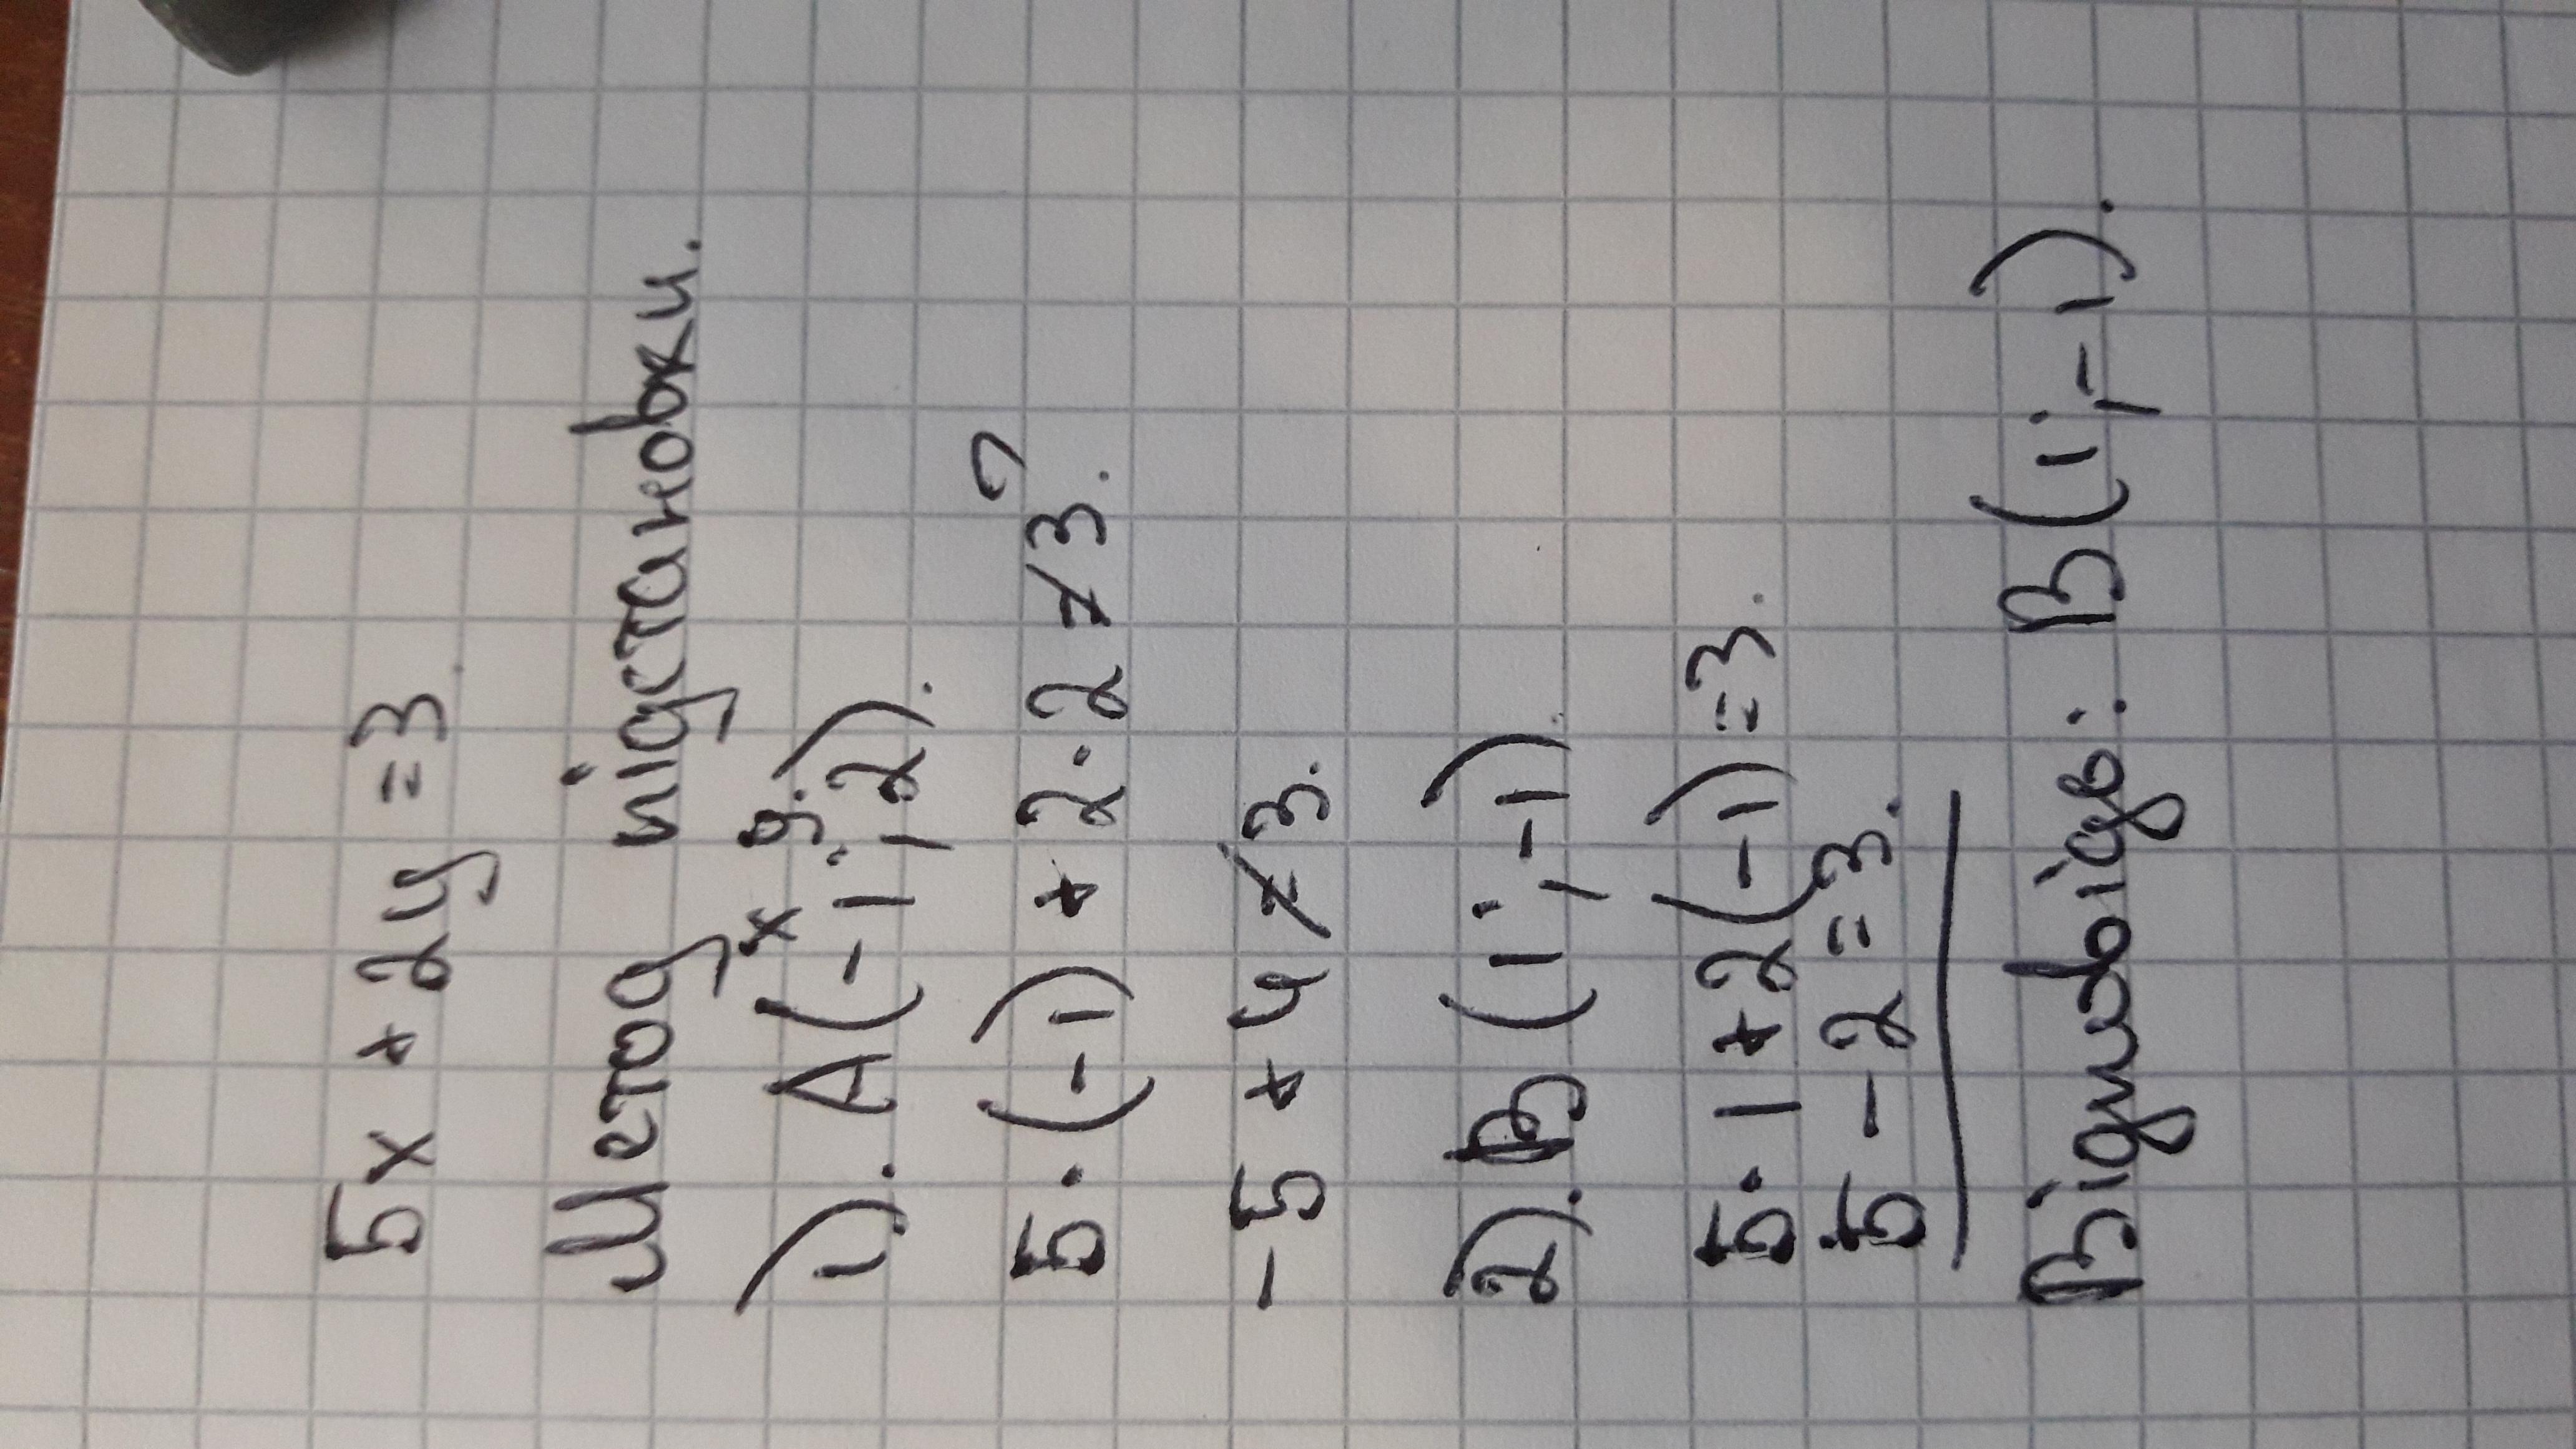 5x + 2y = 3.
Метод підстановки.
x y
1). A(-1; 2).
5·(-1) + 2·2 ≠ 3. ?
-5 + 4 ≠ 3.
2). B (1; -1).
5·1 + 2(-1) = 3.
5 - 2 = 3.
Відповідь: B(1; -1).